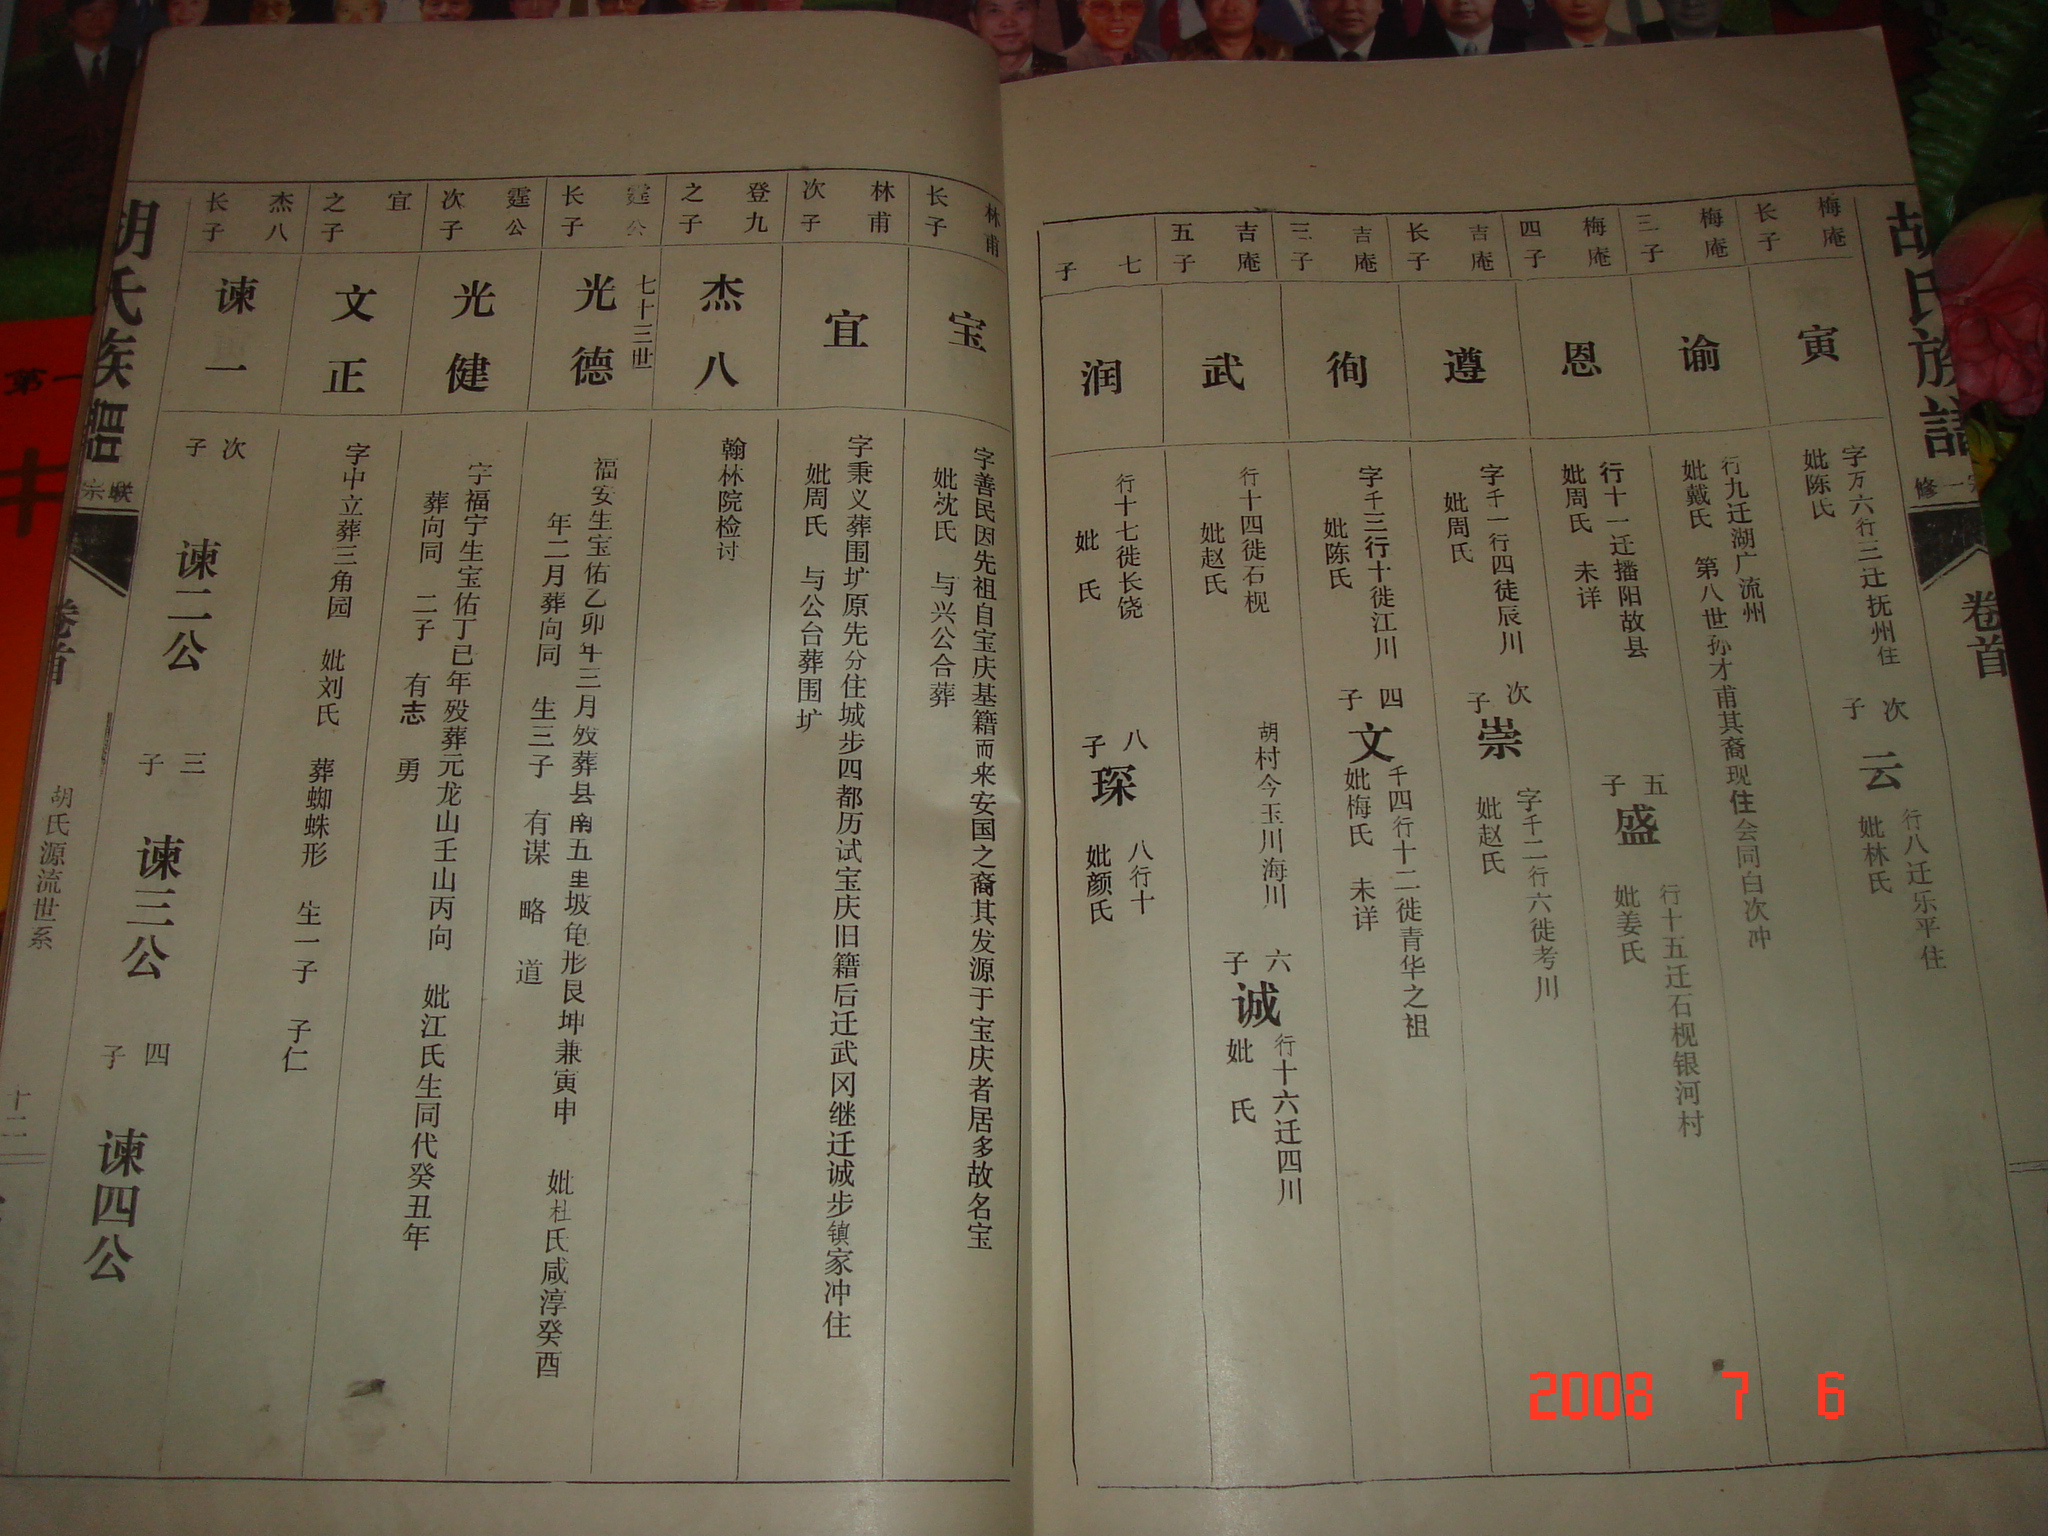 胡氏族谱
修一宗
卷首
梅庵
长子
寅
字万六行三迁抚州住
妣陈氏
次子
云
行八迁乐平住
妣林氏
梅庵
三子
谕
行九迁湖广流州
妣戴氏 第八世孙才甫其裔现住会同白次冲
梅庵
四子
恩
行十一迁播阳故县
妣周氏 未详
五子
盛
行十五迁石枧银河村
妣姜氏
吉庵
长子
遵
字千一行四徒辰川
妣周氏
次子
崇
字千二行六徙考川
妣赵氏
吉庵
三子
徇
字千三行十徙江川
妣陈氏
四子
文
千四行十二徙青华之祖
妣梅氏 未详
吉庵
五子
武
行十四徒石枧
妣赵氏
胡村今玉川海川
六子
诚
行十六迁四川
妣 氏
七子
润
行十七徙长饶
妣 氏
八子
琛
八行十
妣颜氏
林甫
长子
宝
字善民因先祖自宝庆基籍而来安国之裔其发源于宝庆者居多故名宝
妣沈氏 与兴公合葬
林甫
次子
宜
字秉义葬围圹原先分住城步四都历试宝庆旧籍后迁武冈继迁诚步镇家冲住
妣周氏 与公台葬围圹
登九
之子
杰八
翰林院检讨
七十三世
霆公
长子
光德
福安生宝佑乙卯年三月殁葬县南五里坡龟形艮坤兼寅申 妣杜氏咸淳癸酉
年二月葬向同 生三子 有谋 略 道
霆公
次子
光健
字福宁生宝佑丁已年殁葬元龙山壬山丙向 妣江氏生同代癸丑年
葬向同 二子 有志 勇
宜
之子
文正
字中立葬三角园 妣刘氏 葬蜘蛛形 生一子 子仁
杰八
长子
谏一
次子
谏二公
三子
谏三公
四子
谏四公
胡氏族谱
联宗
卷首
胡氏源流世系
十二
第一
2008 7 6